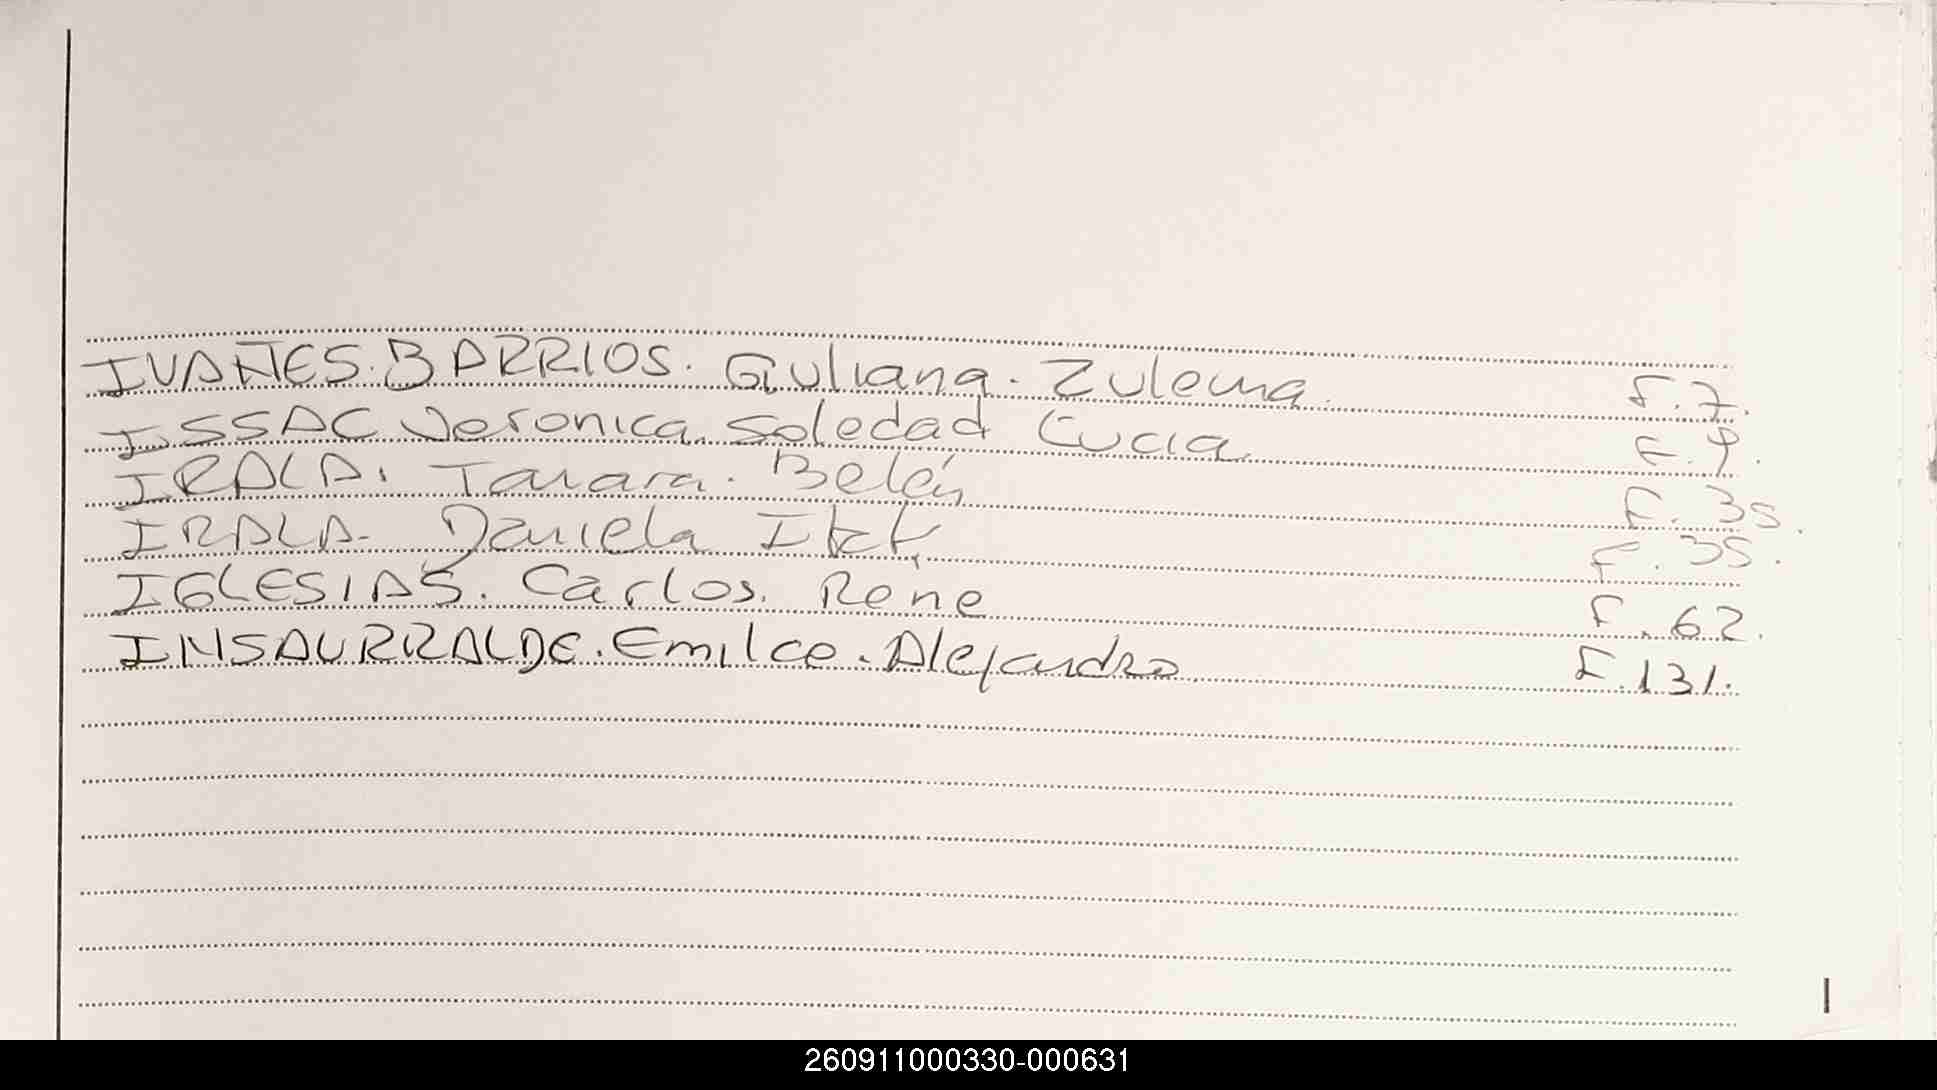 IVAÑES. BARRIOS. Giuliana. Zulema. F. 7.
ISSAC Veronica. Soledad Lucia. F. 9.
IRALA. Tamara. Belén F. 35.
IRALA. Daniela F. 35.
IGLESIAS. Carlos. Rene F. 62.
INSAURRALDE. Emilce. Alejandro F. 131.
I
260911000330-000631